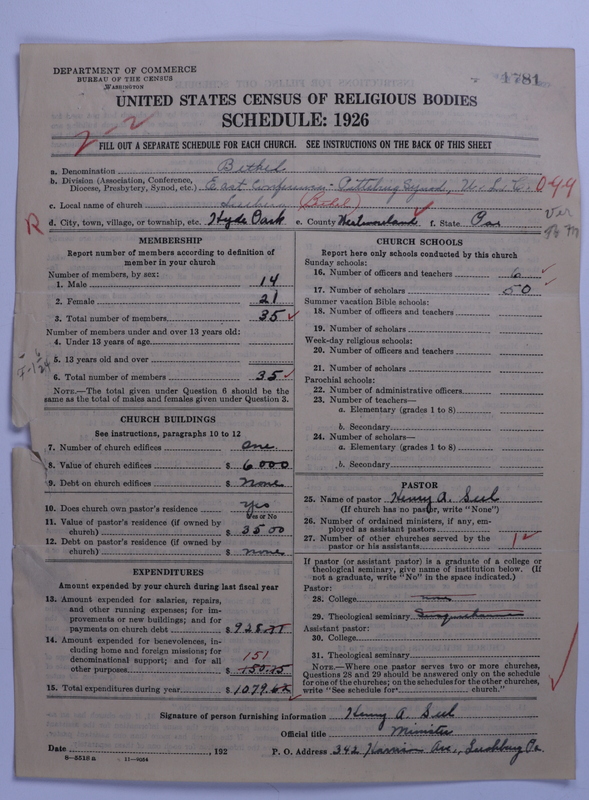 DEPARTMENT OF COMMERCE
BUREAU OF THE CENSUS
WASHINGTON
1781
UNITED STATES CENSUS OF RELIGIOUS BODIES
SCHEDULE: 1926
2-2
FILL OUT A SEPARATE SCHEDULE FOR EACH CHURCH. SEE INSTRUCTIONS ON THE BACK OF THIS SHEET
a. Denomination Bethel
b. Division (Association, Conference, Diocese, Presbytery, Synod, etc.) East Conference - Pittsburg Synod, U. L. C.
c. Local name of church (Bethel)
R
d. City, town, village, or township, etc. Hyde Park e. County Westmoreland f. State Pa.
MEMBERSHIP
Report number of members according to definition of member in your church
Number of members, by sex:
1. Male 14
2. Female 21
3. Total number of members. 35
Number of members under and over 13 years old:
4. Under 13 years of age
5. 13 years old and over
6. Total number of members 35
NOTE.—The total given under Question 6 should be the same as the total of males and females given under Question 3.
CHURCH BUILDINGS
See instructions, paragraphs 10 to 12
7. Number of church edifices one.
8. Value of church edifices $ 6000
9. Debt on church edifices $ None
10. Does church own pastor's residence yes
Yes or No
11. Value of pastor's residence (if owned by church) $ 3500
12. Debt on pastor's residence (if owned by church) $ none
EXPENDITURES
Amount expended by your church during last fiscal year
13. Amount expended for salaries, repairs, and other running expenses; for improvements or new buildings; and for payments on church debt $ 928
14. Amount expended for benevolences, including home and foreign missions; for denominational support; and for all other purposes
151
$ 150
15. Total expenditures during year $ 1079
CHURCH SCHOOLS
Report here only schools conducted by this church
Sunday schools:
16. Number of officers and teachers 6
17. Number of scholars 50
Summer vacation Bible schools:
18. Number of officers and teachers
19. Number of scholars
Week-day religious schools:
20. Number of officers and teachers
21. Number of scholars
Parochial schools:
22. Number of administrative officers
23. Number of teachers—
a. Elementary (grades 1 to 8)
b. Secondary
24. Number of scholars—
a. Elementary (grades 1 to 8)
b. Secondary
PASTOR
25. Name of pastor Henry A. Seel
(If church has no pastor, write "None")
26. Number of ordained ministers, if any, employed as assistant pastors
27. Number of other churches served by the pastor or his assistants 1
If pastor (or assistant pastor) is a graduate of a college or theological seminary, give name of institution below. (If not a graduate, write "No" in the space indicated.)
Pastor:
28. College
29. Theological seminary Susquehanna
Assistant pastor:
30. College
31. Theological seminary
NOTE.—Where one pastor serves two or more churches, Questions 28 and 29 should be answered only on the schedule for one of the churches; on the schedules for the other churches, write "See schedule for church."
Signature of person furnishing information Henry A. Seel
Official title Minister
Date , 192 P. O. Address 342 Harrison Ave., Leechburg Pa.
8-5518 a 11-9054